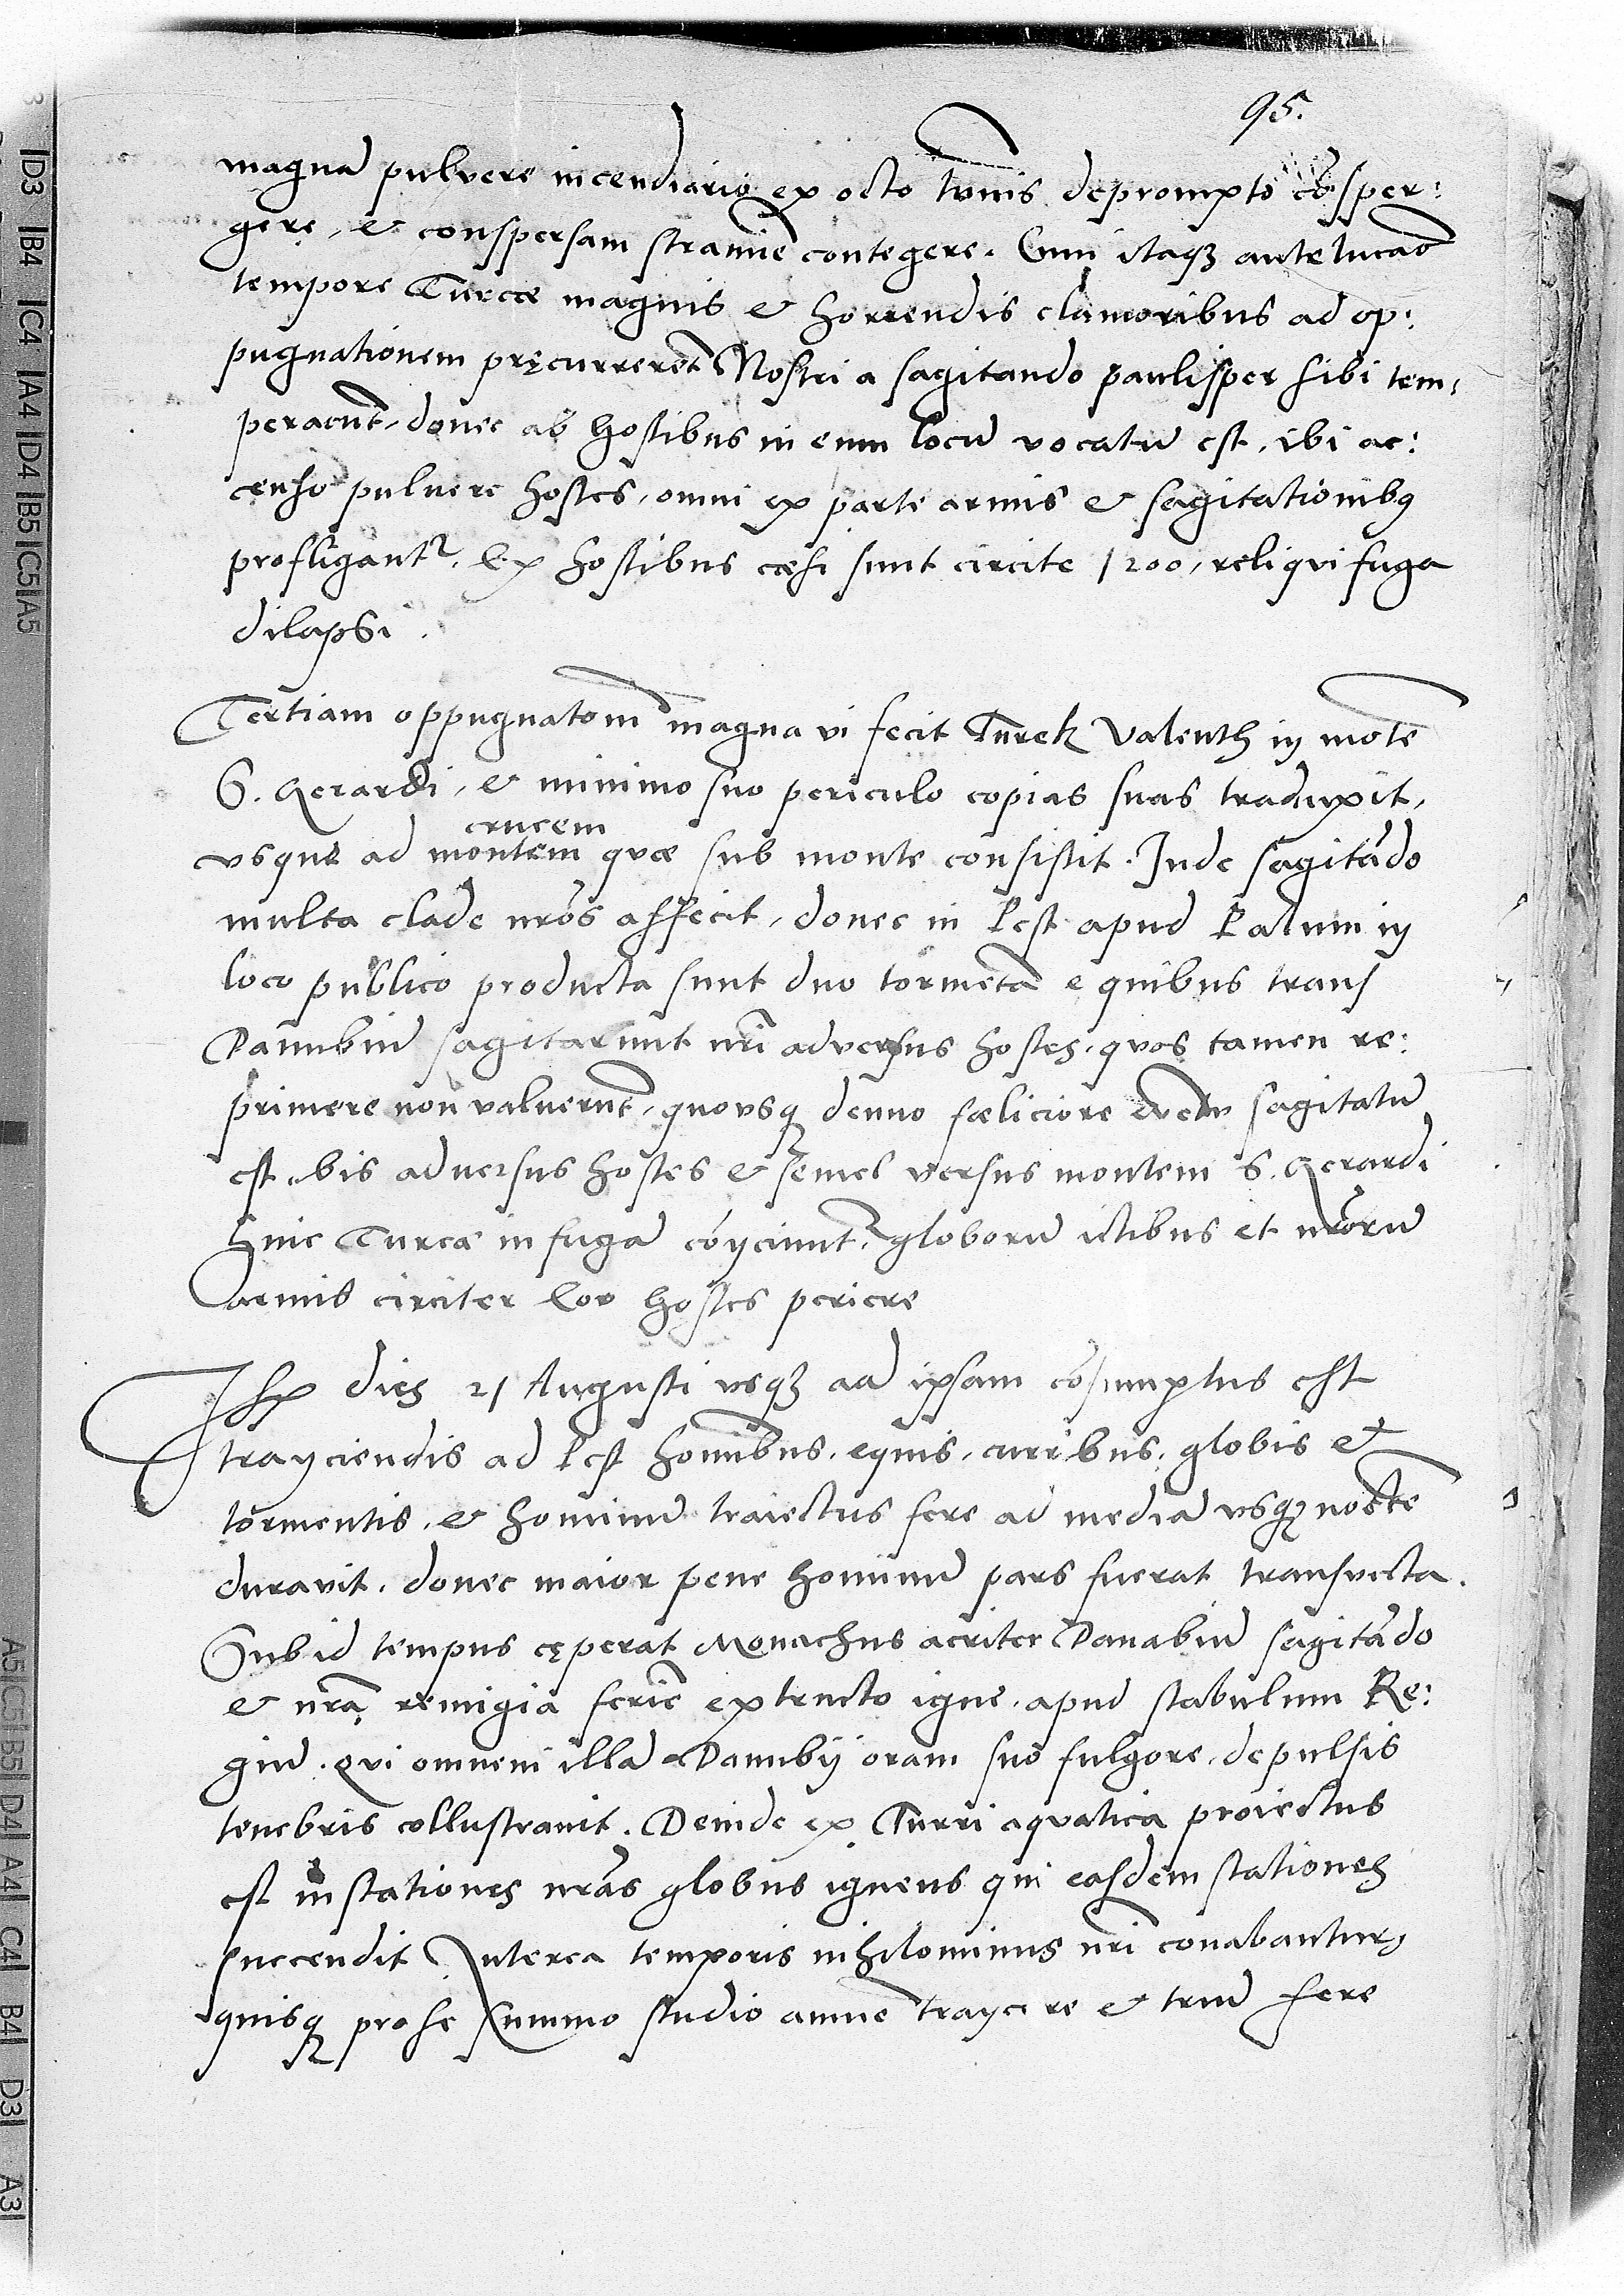 95.
magnā pulvere incendiario ex octo tonis deprompto cōsper:
gere, & conspersam stramīe contegere. Cum itaqȝ antelucaō
tempore Turcæ magnis & horrendis clamoribus ad op:
pugnationem pręcurrerēt Nostri a sagitando paulisper sibi tem,
perarūt, donec ab hostibus in eum locū vocatū est, ibi ac:
censo pulvere hostes, omni ex parte armis & sagitationibꝰ
profligantr. Ex hostibus cæsi sunt circite 1200, reliqvi fuga
dilapsi.
Tertiam oppugnatom̄ magna vi fecit Turek Valenth iɳ mōte
S. Gerardi, & minimo suo periculo copias suas traduxit,
crucem
vsque ad montem qvæ sub monte consistit. Inde sagitādo
multa clade nrōs affecit, donec in Pest apud Palum iɳ
loco publico producta sunt duo tormētā e quibus trans
Danubiū sagitarunt nrī adversus hostes, qvos tamen re:
primere non valuerūt, quovsqꝫ denuo fæliciore sagitatū
est, bis adversus hostes & semel versus montem S. Gerardi
Hinc Turcæ in fugā cōijciunt, globorū ictibus et nrōrū
armis circiter hostes periere
dies 21 Augusti vsqȝ ad ipsam cōsumptus est
traijciendis ad Pest homībus, equis, curribus, globis &
tormentis, & hominū traiectus fere ad mediā vsqȝ noctē
duravit, donec maior pene hominū pars fuerat transvecta.
Sub id tempus cęperat Monachus acriter Danabiū sagitādo
& nrā remigia ferīe extructo igne, apud stabulum Re:
giū. qvi omnem illā Danubij oram suo fulgore, depulsis
tenebris collustravit. Deinde ex Turri aqvatica proiectus
est in stationes nrās globus igneus qui easdem stationes
succendit Interea temporis nihilominus nrī conabantur,
quisqꝫ pro se summo studio amnē traijcere & trm̄ fere